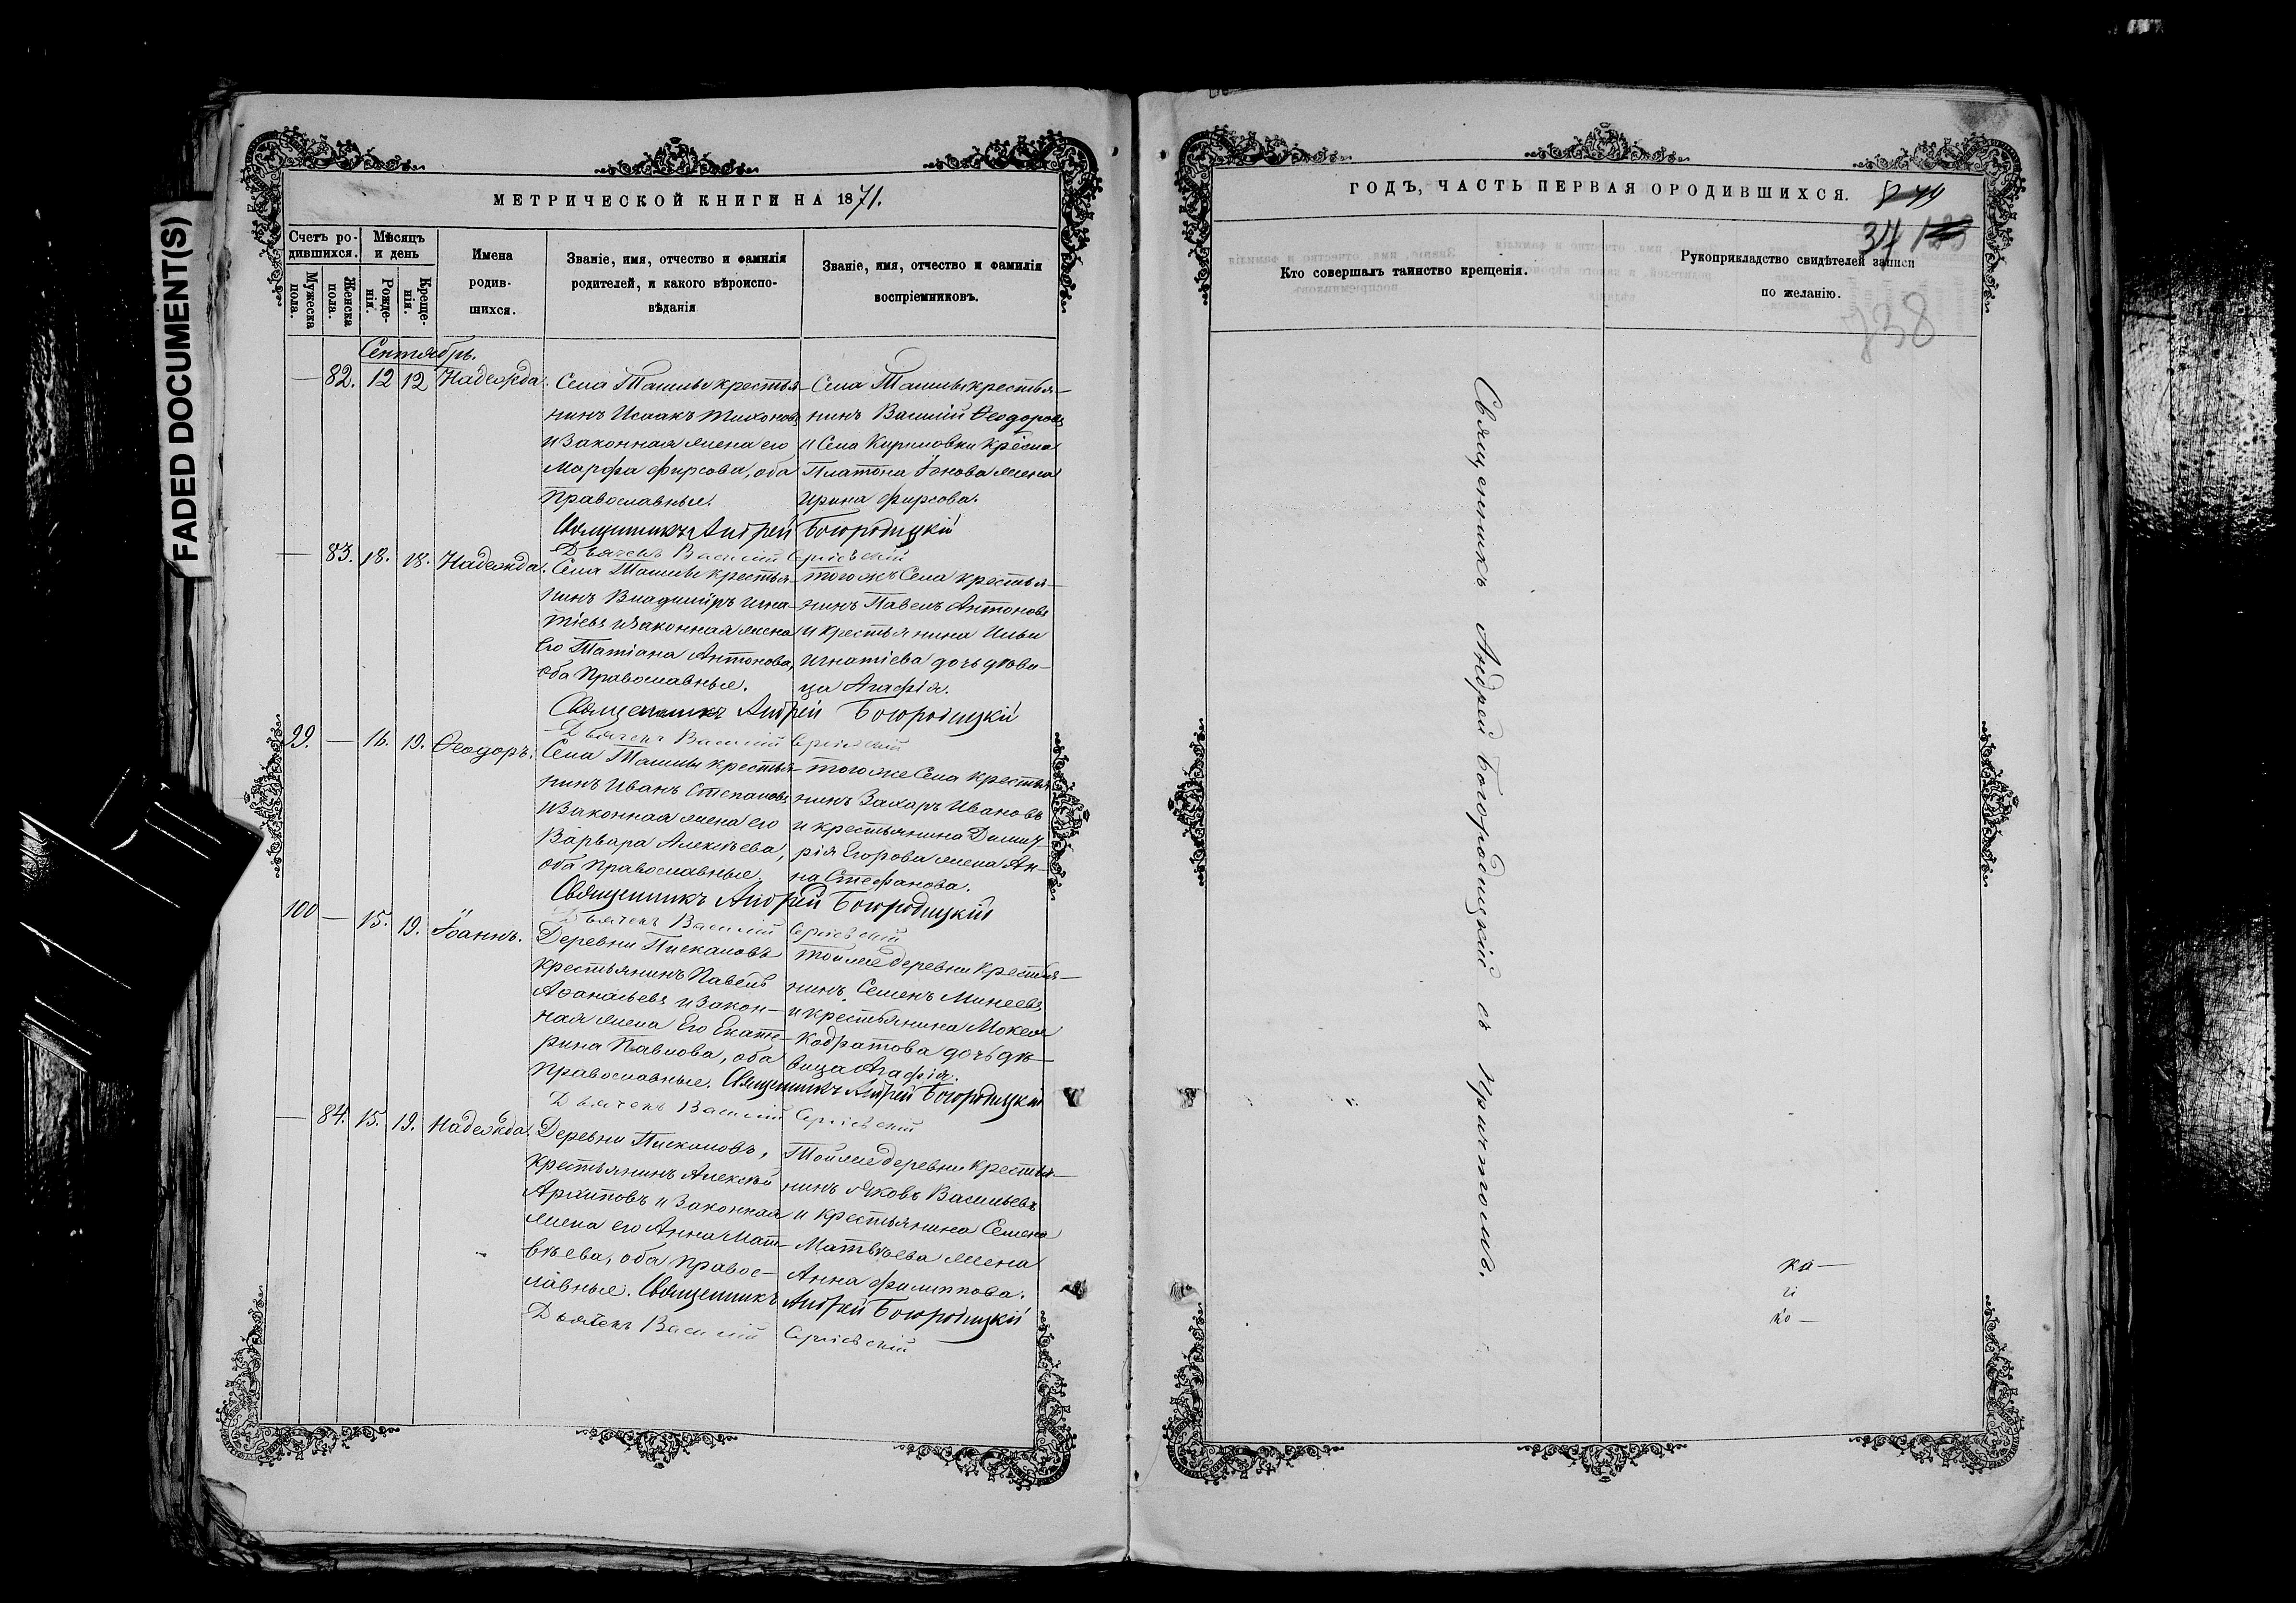 FADED DOCUMENT(S)
МЕТРИЧЕСКОЙ КНИГИ НА 1871.
Счетъ ро-
дившихся.
Мужеска
пола.
Женска
пола.
Мѣсяцъ
и день
Рожде-
нія.
Креще-
нія.
Имена
родив-
шихся.
Званіе, имя, отчество и фамилія
родителей, и какого вѣроиспо-
вѣданія
Званіе, имя, отчество и фамилія
воспріемниковъ.
Сентябрь.
— 82. 12 12 Надежда.
Села Ташлы крестья-
нинъ Исаакъ Тихоновъ
и законная жена его
Марфа Фирсова, оба
Православные.
Села Ташлы крестья-
нинъ Василій Ѳеодоровъ
и Села Кириловки
Платона Іонова жена
Ирина Фирсова.
Священникъ Андрей Богородицкій
Дьячекъ Василій Сергіевскій
— 83. 18. 18. Надежда.
Села Ташлы крестья-
нинъ Владиміръ Игна-
тіевъ и законная жена
его Татіана Антонова,
оба Православные.
того жъ Села крестья-
нинъ Павелъ Антоновъ
и крестьянина Ильи
Игнатіева дочь дѣви-
ца Агафія.
Священникъ Андрей Богородицкій
Дьячекъ Василій Сергіевскій
99. — 16. 19. Ѳеодоръ.
Села Ташлы крестья-
нинъ Иванъ Степановъ
и законная жена его
Варвара Алексѣева,
оба Православные.
того же Села крестья-
нинъ Захаръ Ивановъ
и крестьянина Димит-
рія Егорова жена Ан-
на Стефанова.
Священникъ Андрей Богородицкій
Дьячекъ Василій Сергіевскій
100 — 15. 19. Іоаннъ.
Деревни Пискаловъ
крестьянинъ Павелъ
Аѳанасьевъ и закон-
ная жена Его Екате-
рина Павлова, оба
Православные.
той же деревни крестья-
нинъ Семенъ Минеевъ
и крестьянина Мокея
Кодратова дочь дѣ-
вица Агафія.
Священникъ Андрей Богородицкій
Дьячекъ Василій Сергіевскій
— 84. 15. 19. Надежда.
Деревни Пискаловъ,
крестьянинъ Алексѣй
Архиповъ и законная
жена его Анна Мат-
вѣева, оба Правос-
лавные.
Той же деревни крестья-
нинъ Яковъ Васильевъ
и крестьянина Семена
Матвѣева жена
Анна Филиппова.
Священникъ Андрей Богородицкій
Дьячекъ Василій Сергіевскій
ГОДЪ, ЧАСТЬ ПЕРВАЯ О РОДИВШИХСЯ.
34
738
Кто совершалъ таинство крещенія.
Рукоприкладство свидѣтелей записи
по желанію.
Священникъ Андрей Богородицкій съ причтомъ.